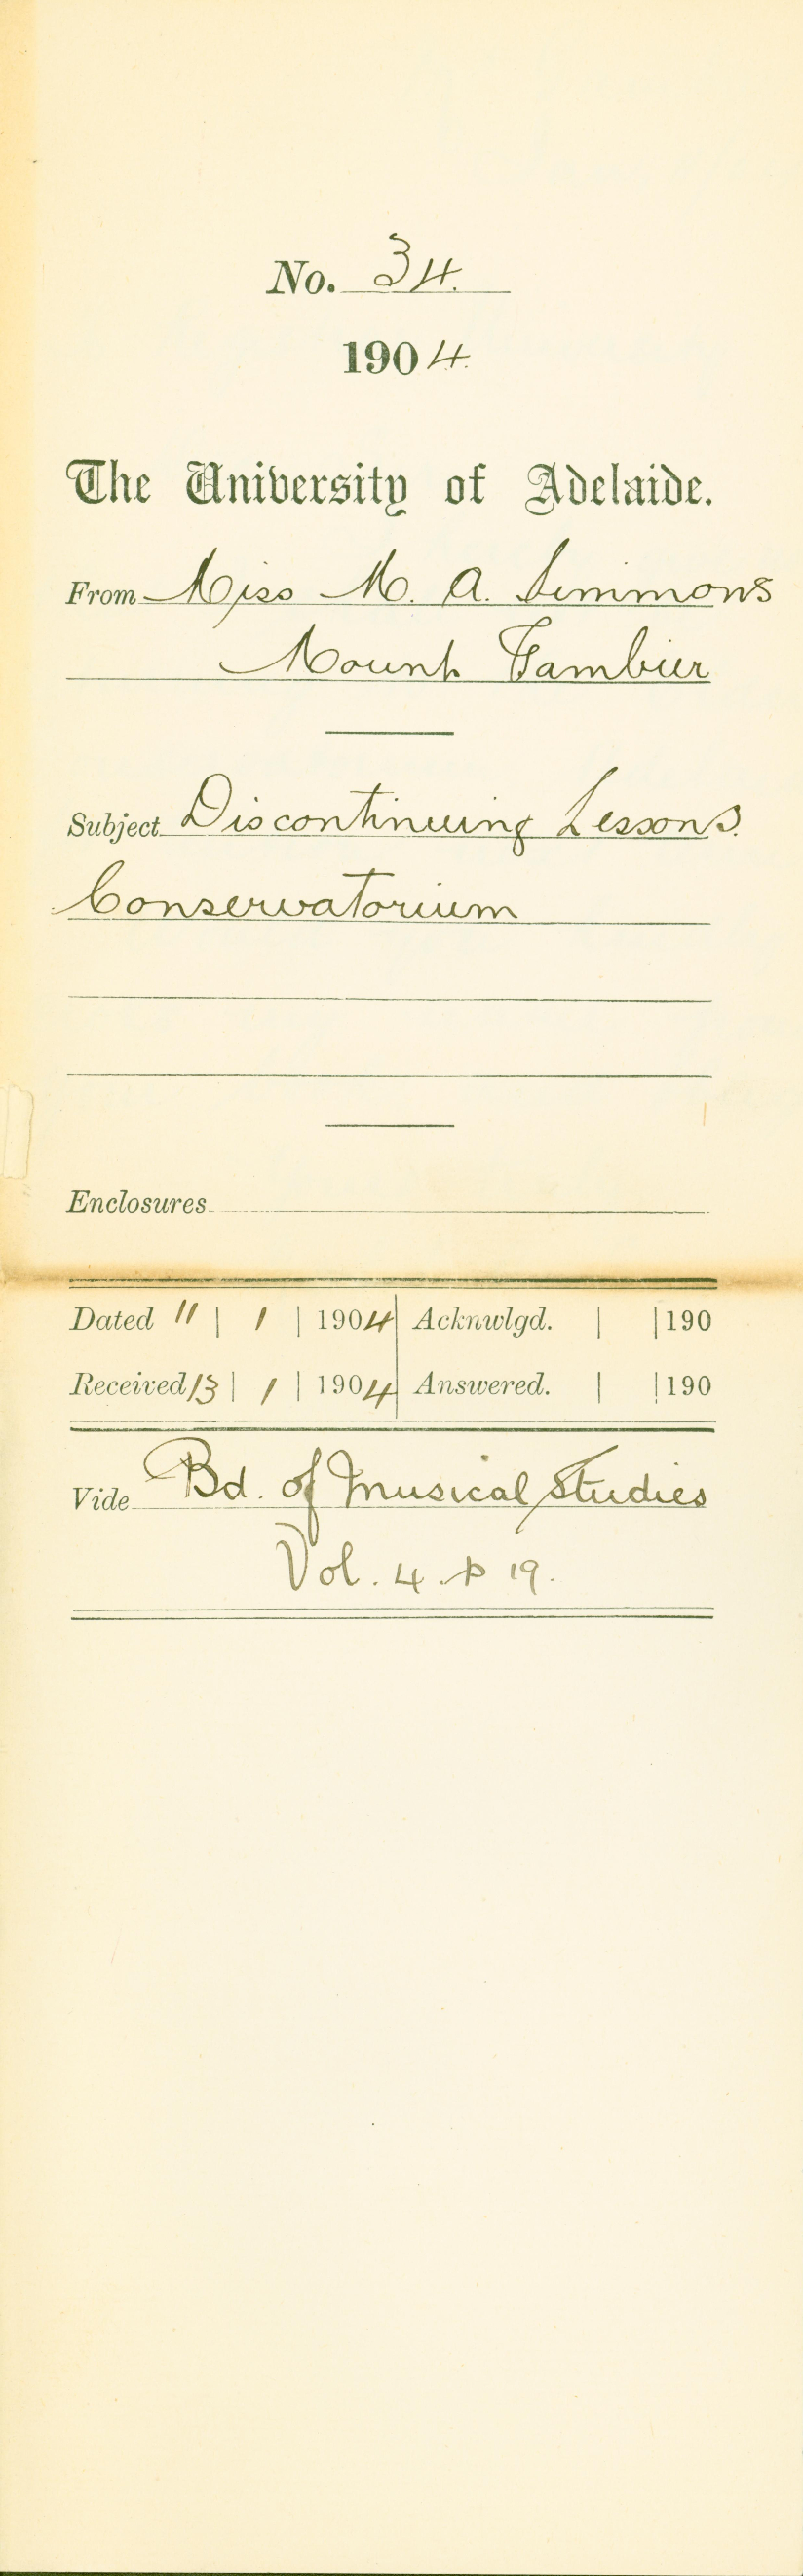 No. 34.
1904.
The University of Adelaide.
From Miss M. A. Simmons
Mount Gambier
Subject Discontinuing Lessons.
Conservatorium
Enclosures
Dated 11 | 1 | 1904 Acknwlgd. | | 190
Received 13 | 1 | 1904 Answered. | | 190
Vide Bd. of Musical Studies
Vol. 4. p 19.